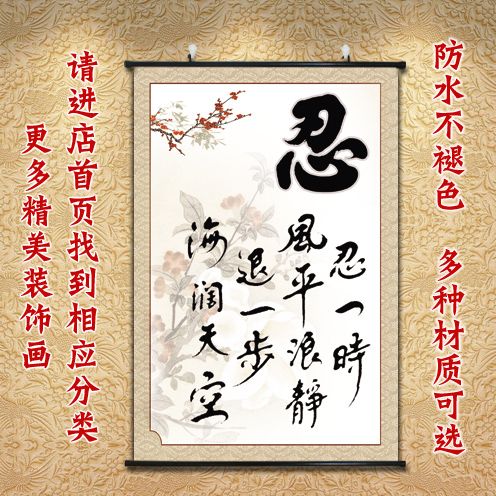 防水不褪色 多种材质可选
忍
忍一時
風平浪靜
退一步
海闊天空
请进店首页找到相应分类
更多精美装饰画